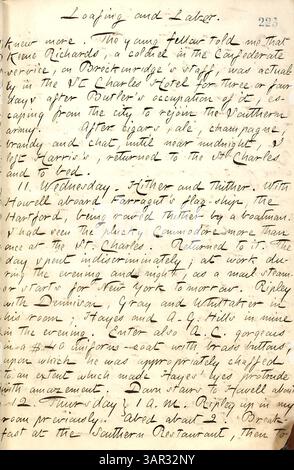 Loafing and Labor.
225
knew more. The young fellow told me that
Kirne Richards, a colonel in the Confederate
service, on Breckinridge's staff, was actual-
ly in the St Charles Hotel for three or four
days after Butler's occupation of it, es-
caping from the city to rejoin the Southern
army. After cigars, ale, champagne,
brandy and chat, until near midnight, I
left Harris's, returned to the St Charles
and to bed.
11. Wednesday. Hither and thither. With
Howell aboard Farragut's flag-ship, the
Hartford, being rowed thither by a boatman.
I had seen the plucky Commodore more than
once at the St. Charles. Returned to it. The
day spent indiscriminately; at work du-
ring the evening and night, as a mail steam-
er starts for New York to morrow. Ripley
with Dennison, Gray and Whittaker in
his room; Hayes and A. G. Hills in mine
in the evening. Enter also A. C. gorgeous
in a $40 uniform-coat with brass buttons,
upon which he was appropriately chaffed
to an extent which made Hayes' eyes protrude
with amazement. Down stairs to Howell about
12 Thursday, 1 A.M. Ripley up in my
room previously. Abed about 2. Break-
fast at the Southern Restaurant, then to